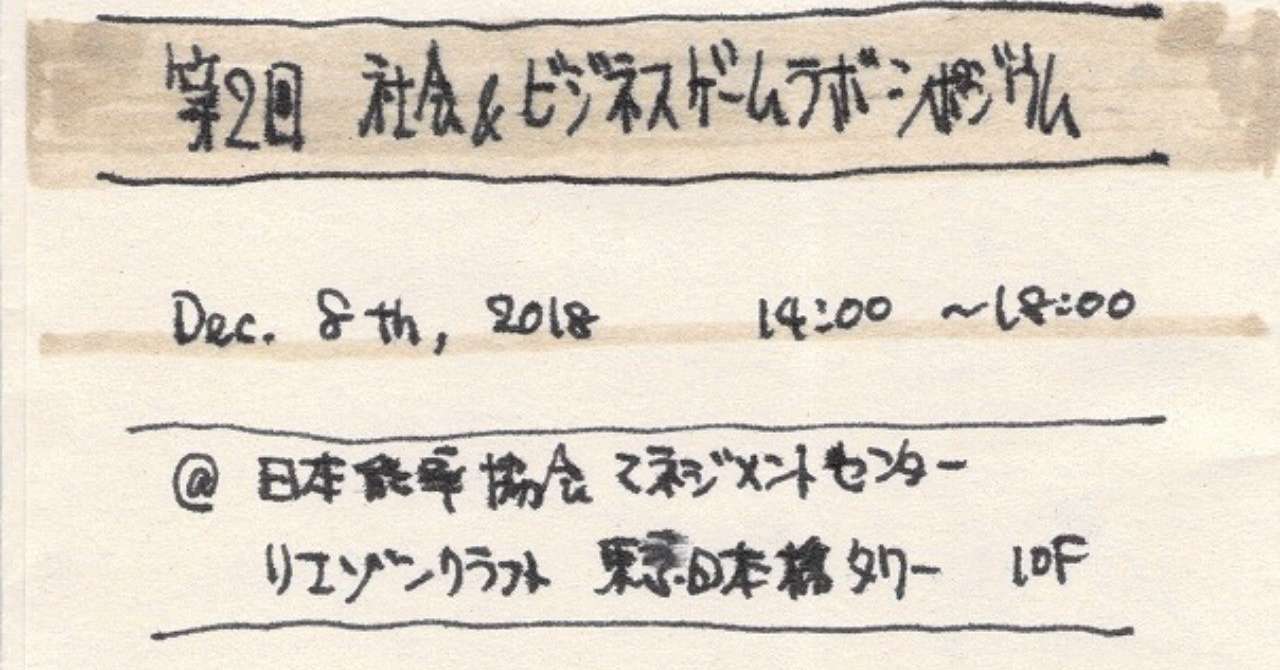 第2回 社会&ビジネスゲームラボ・シンポジウム
Dec. 8th, 2018 14:00 ~18:00
@ 日本能率協会マネジメントセンター
リエゾンクラフト 東京日本橋タワー 10F